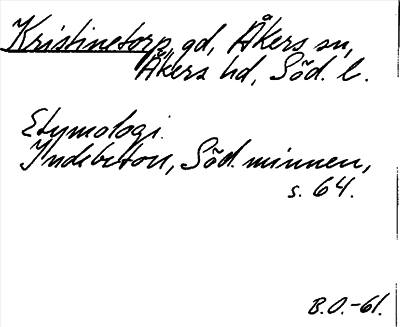 Kristinetorp, gd, Åkers sn,
Åkers hd, Söd. l.
Etymologi.
Indebetou, Söd. minnen,
s. 64.
B.O.-61.